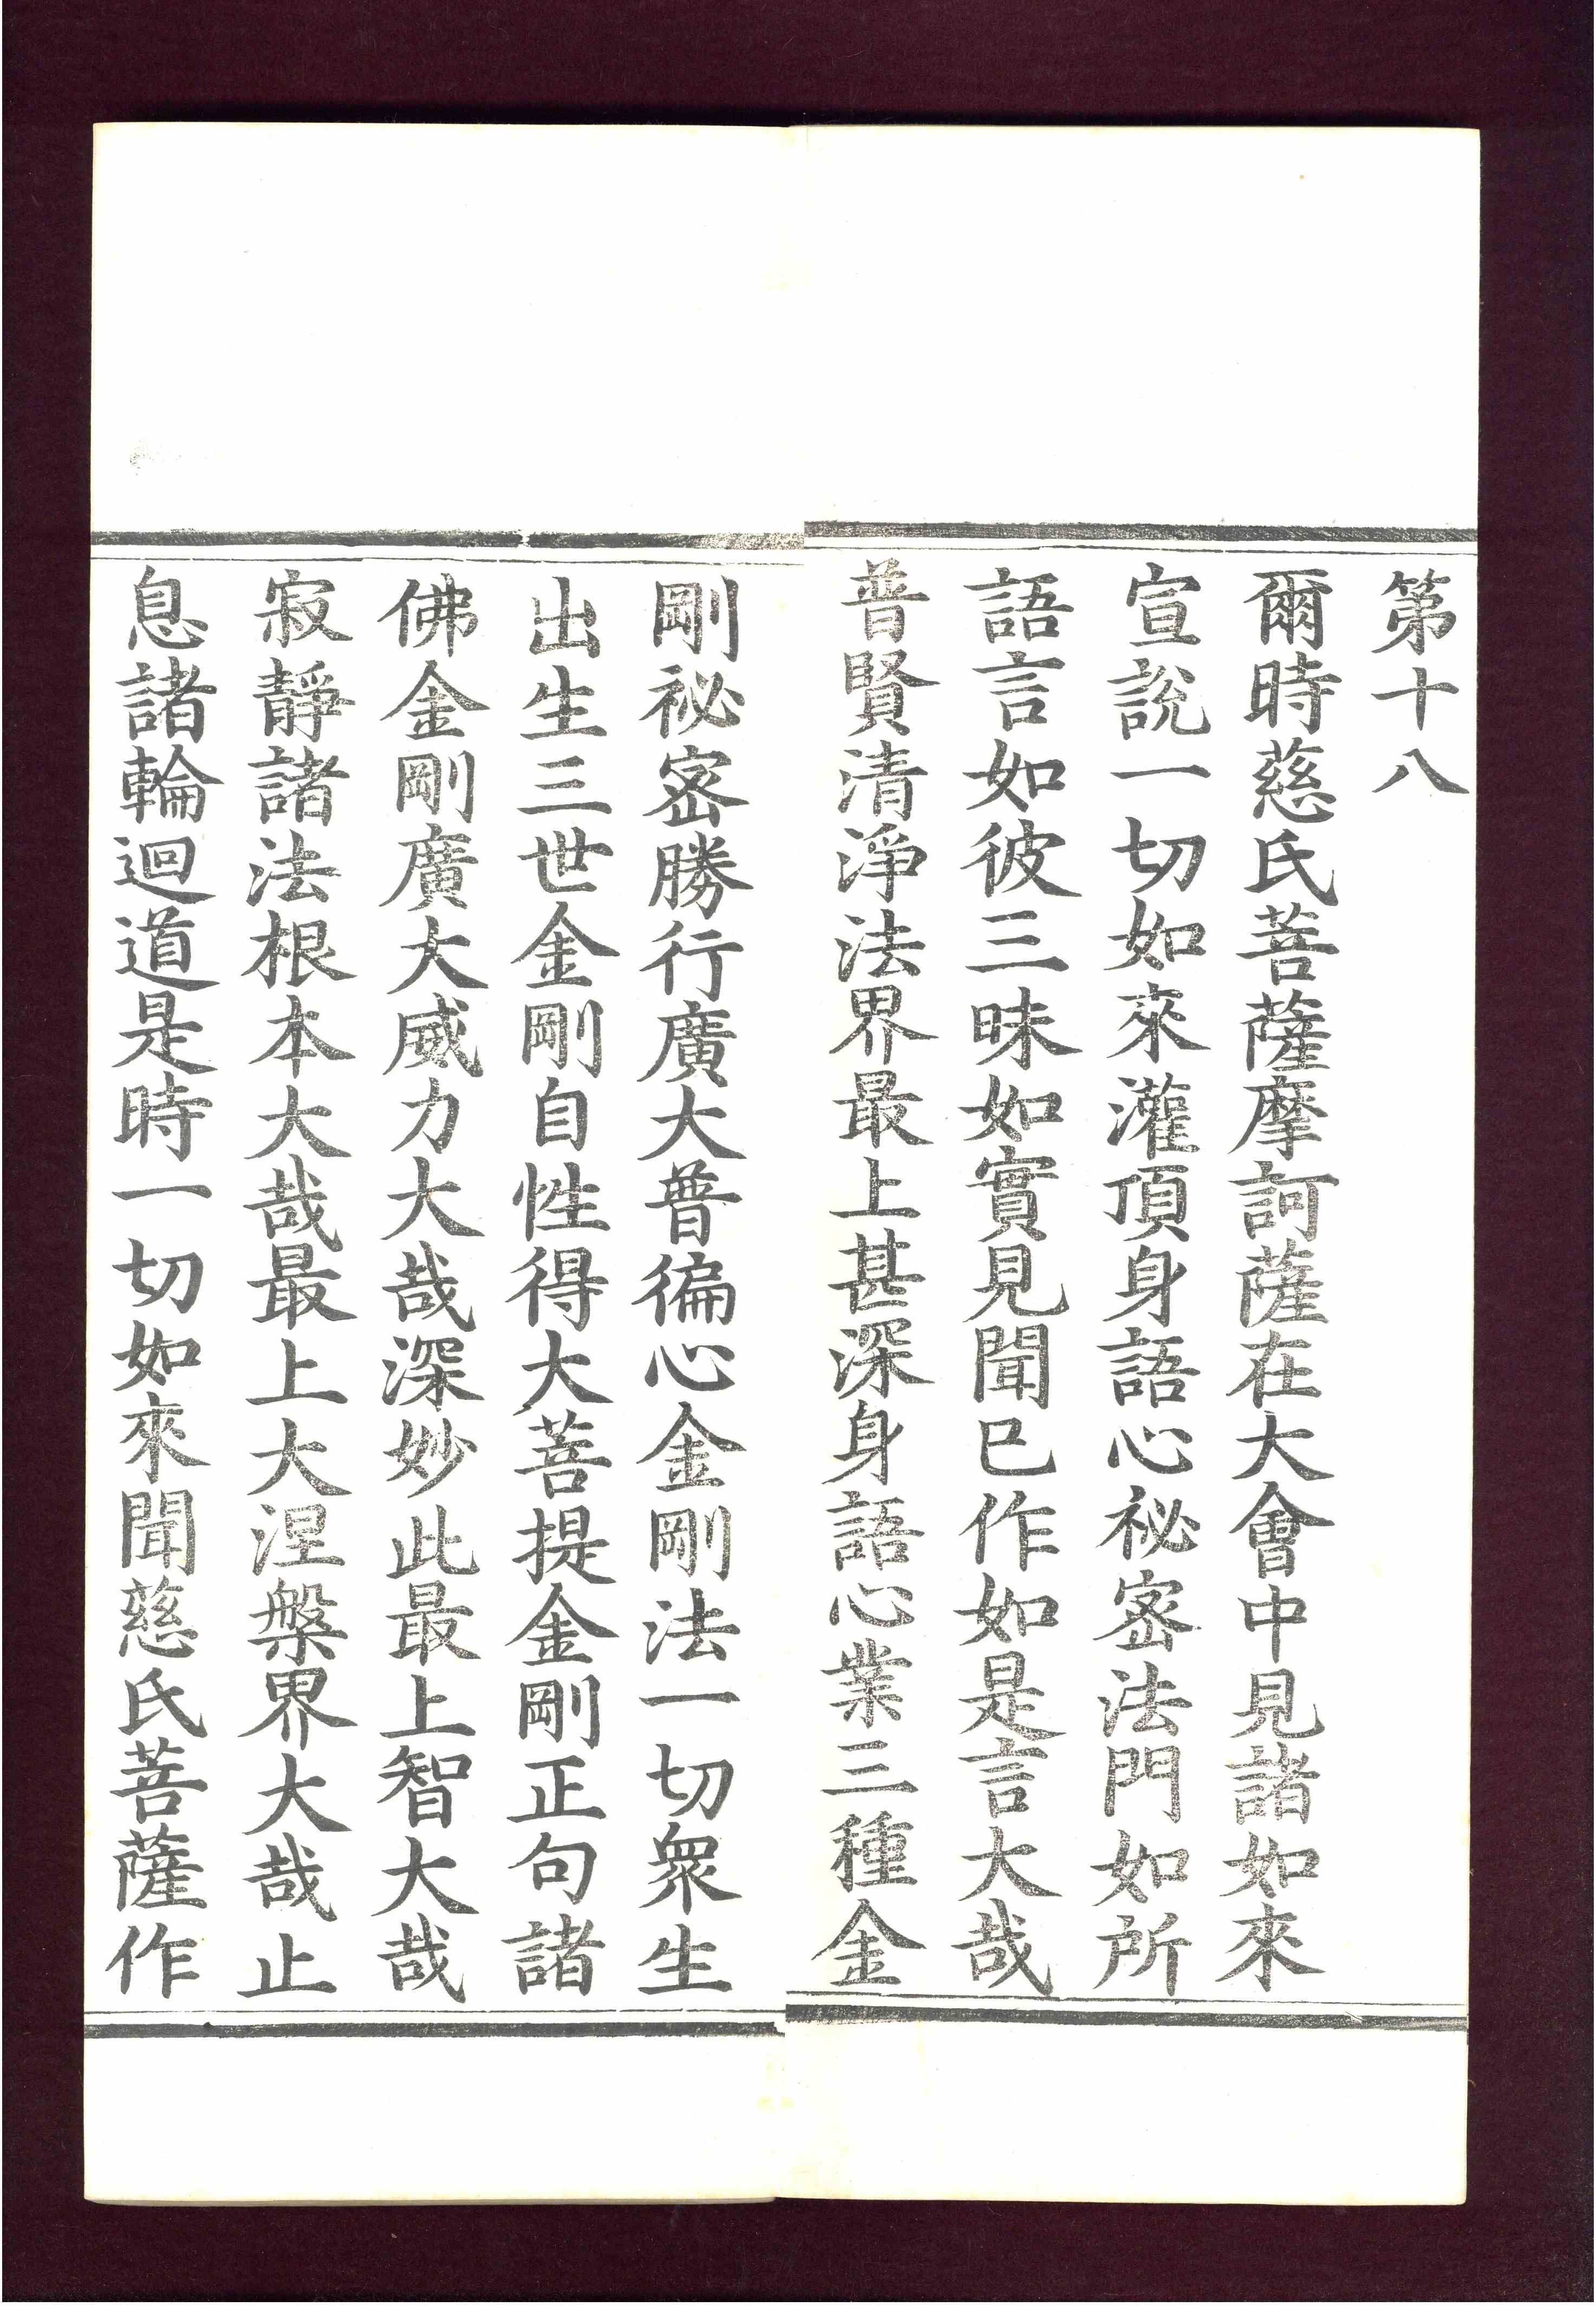 第十八
爾時慈氏菩薩摩訶薩在大會中見諸如來
宣說一切如來灌頂身語心祕密法門如所
語言如彼三昧如實見聞已作如是言大哉
普賢清淨法界最上甚深身語心業三種金
剛祕密勝行廣大普徧心金剛法一切眾生
出生三世金剛自性得大菩提金剛正句諸
佛金剛廣大威力大哉深妙此最上智大哉
寂靜諸法根本大哉最上大涅槃界大哉止
息諸輪迴道是時一切如來聞慈氏菩薩作